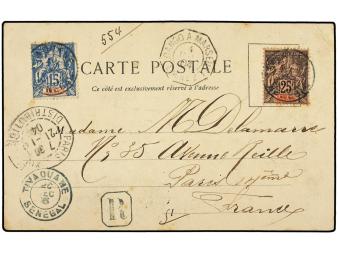 554
15
CARTE POSTALE
25
Ce côté est exclusivement réservé à l'adresse
Madame M. Delamarre
No 35 Avenue Reille
Paris
France
PARIS
DISTRIBUTION
TIVAOUANE
SENEGAL
R